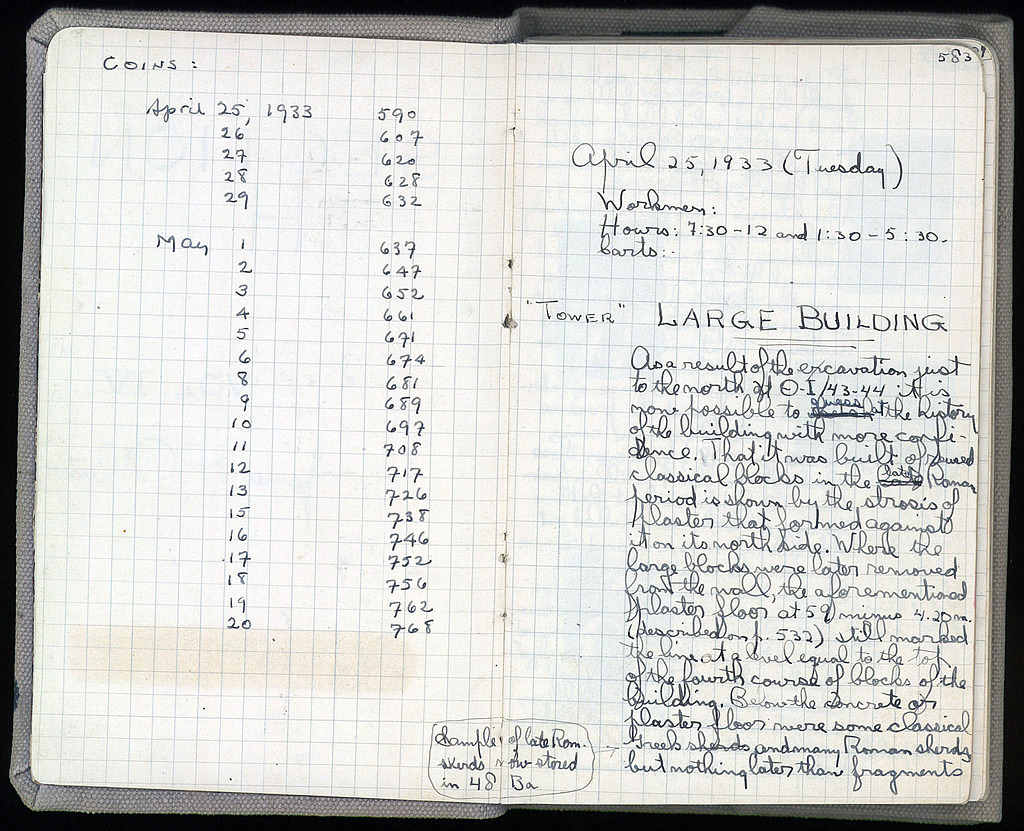 COINS:
April 25, 1933 590
26 607
27 620
28 628
29 632
May 1 637
2 647
3 652
4 661
5 671
6 674
8 681
9 689
10 697
11 708
12 717
13 726
15 738
16 746
17 752
18 756
19 762
20 768
583
April 25, 1933 (Tuesday)
Workmen:
Hours: 7:30-12 and 1:30-5:30.
Carts:-
"TOWER" LARGE BUILDING
As a result of the excavation just
to the north of Θ-I/43-44 it is
now possible to guess at the history
of the building with more confi-
dence. That it was built of reused
classical blocks in the late Roman
period is shown by the strosis of
plaster that formed against
it on its north side. Where the
large blocks were later removed
from the wall, the aforementioned
plaster floor at 59 minus 4.20 m.
(described on p. 532) still marked
the line at a level equal to the top
of the fourth course of blocks of the
building. Below the concrete or
plaster floor were some classical
Greek sherds and many Roman sherds
but nothing later than fragments
Sample of late Rom.
sherds now stored
in 48 Ba